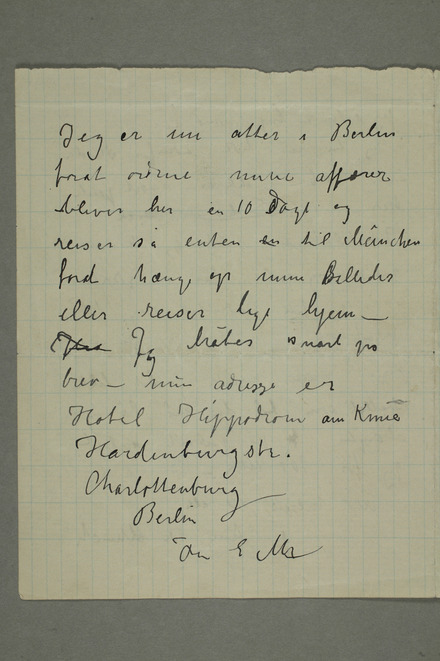 Jeg er nu atter i Berlin
forat ordne mine affærer
bliver her en 10 Dage og
reiser så enten til München
ford hænge op mine Billeder
eller reiser lige hjem —
Jeg håber snart på
brev — min adresse er
Hotel Hippodrom am Knie
Hardenburgstr.
Charlottenburg
Berlin
Din E M